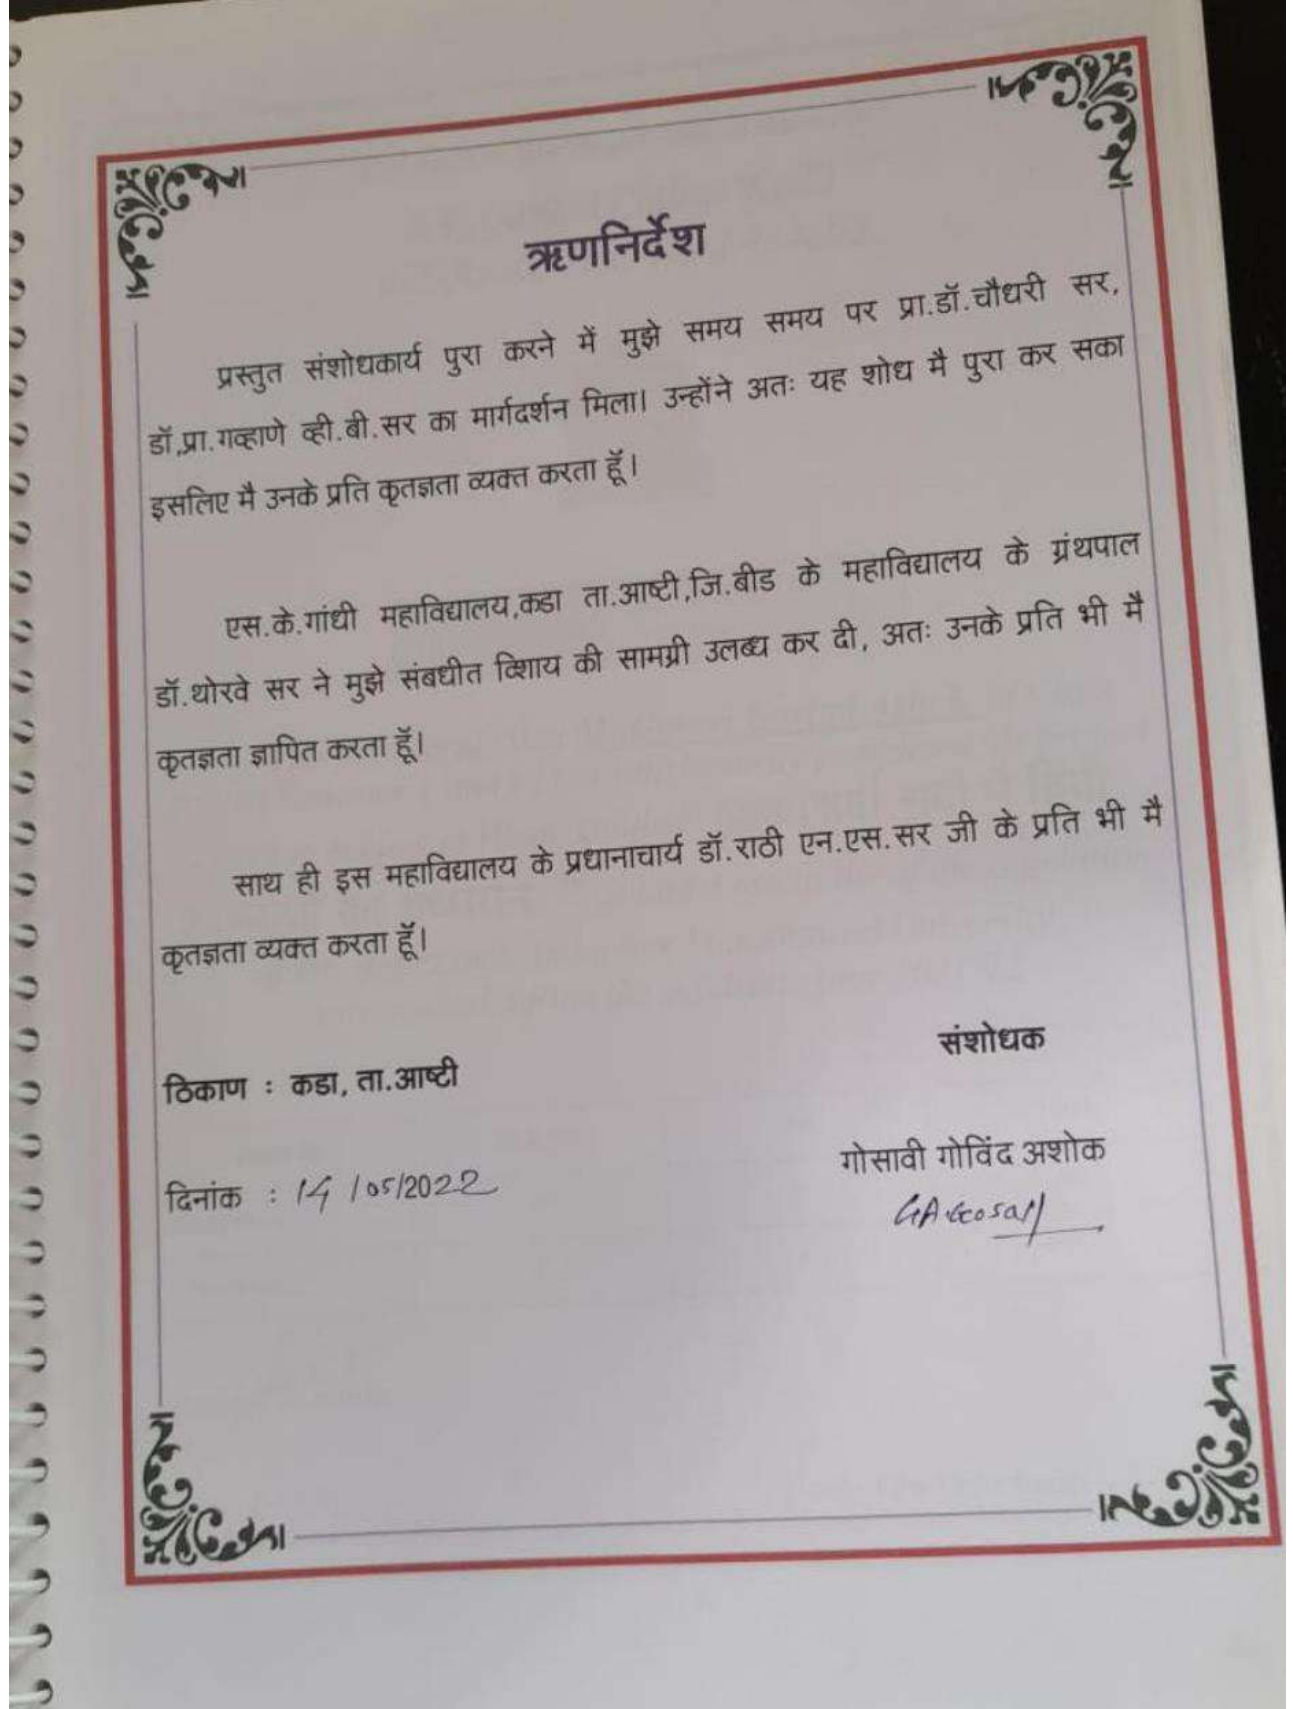 ऋणनिर्देश
प्रस्तुत संशोधकार्य पुरा करने में मुझे समय समय पर प्रा.डॉ.चौधरी सर,
डॉ.प्रा.गव्हाणे व्ही.बी.सर का मार्गदर्शन मिला। उन्होंने अतः यह शोध मै पुरा कर सका
इसलिए मै उनके प्रति कृतज्ञता व्यक्त करता हूॅं।
एस.के.गांधी महाविद्यालय,कडा ता.आष्टी,जि.बीड के महाविद्यालय के ग्रंथपाल
डॉ.थोरवे सर ने मुझे संबधीत विशाय की सामग्री उलब्ध कर दी, अतः उनके प्रति भी मै
कृतज्ञता ज्ञापित करता हूॅं।
साथ ही इस महाविद्यालय के प्रधानाचार्य डॉ.राठी एन.एस.सर जी के प्रति भी मै
कृतज्ञता व्यक्त करता हूॅं।
संशोधक
ठिकाण : कडा, ता.आष्टी
गोसावी गोविंद अशोक
दिनांक : 14/05/2022